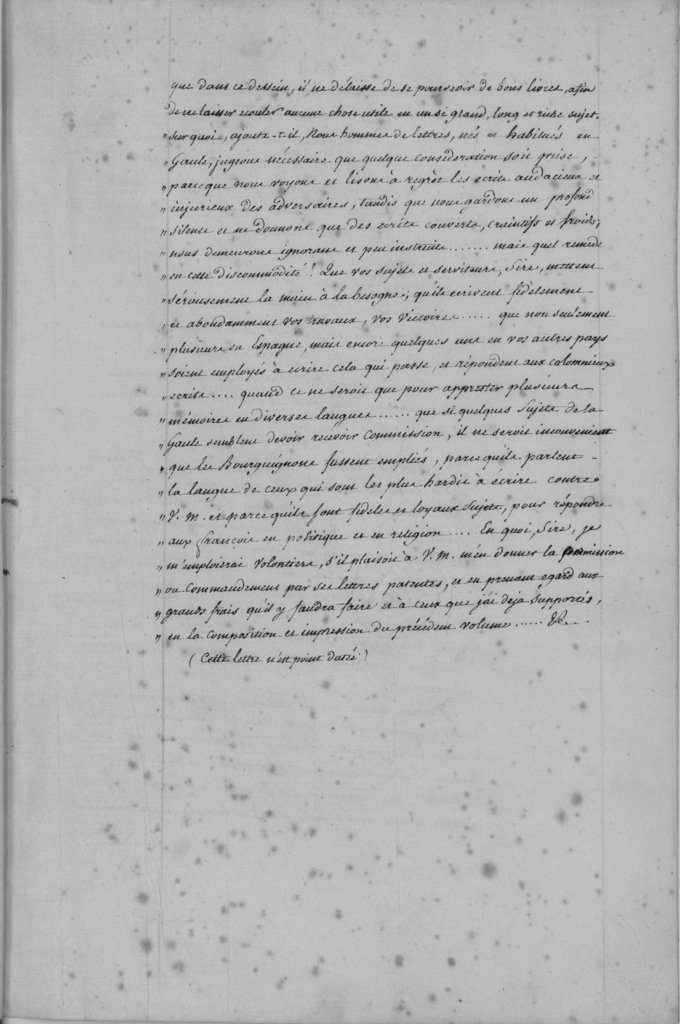 que dans ce dessein, il ne délaisse de se pourvoir de bons livres, afin
de ne laisser écouler aucune chose utile en un si grand, long et riche sujet.
„ Sur quoi, ajoute-t-il, Nous hommes de lettres, nés et habitués en
„ Gaule, jugeons nécessaire que quelque consideration soit prise,
„ parce que nous voyons et lisons à regrèt les ecrits audacieux et
„ injurieux des adversaires, tandis que nous gardons un profond
„ silence et ne donnons que des ecrits couverts, craintifs et froids;
„ nous demeurons ignorans et peu instruits ........ mais quel remede
„ en cette discommodité! Que vos sujets et serviteurs, Sire, mettent
„ sérieusement la main à la besogne; qu'ils ecrivent fidelement
„ et abondamment vos travaux, vos victoires ...... que non seulement
„ plusieurs en Espagne, mais encore quelques uns en vos autres pays
„ soient employés à écrire cela qui passe, et répondent aux calomnieux
„ ecrits .... quand ce ne seroit que pour apprester plusieurs
„ mémoires en diverses langues ....... que si quelques Sujets de la
„ Gaule semblent devoir recevoir Commission, il ne seroit inconvenient
„ que les Bourguignons fussent empliés, parce qu'ils parlent
„ la langue de ceux qui sont les plus hardis à écrire contre
„ V. M. et parce qu'ils sont fideles et loyaux Sujets, pour répondre
„ aux françois en politique et en religion .... En quoi, Sire, je
„ m'emploierai volontiers, s'il plaisoit à V. M. m'en donner la commission
„ ou Commandement par ses lettres patentes, et en prenant egard aux
„ grands frais qu'il y faudra faire et à ceux que j'ai déja Supportés,
„ en la composition et impression du précédent volume ...... &c.
( Cette lettre n'est point datée )